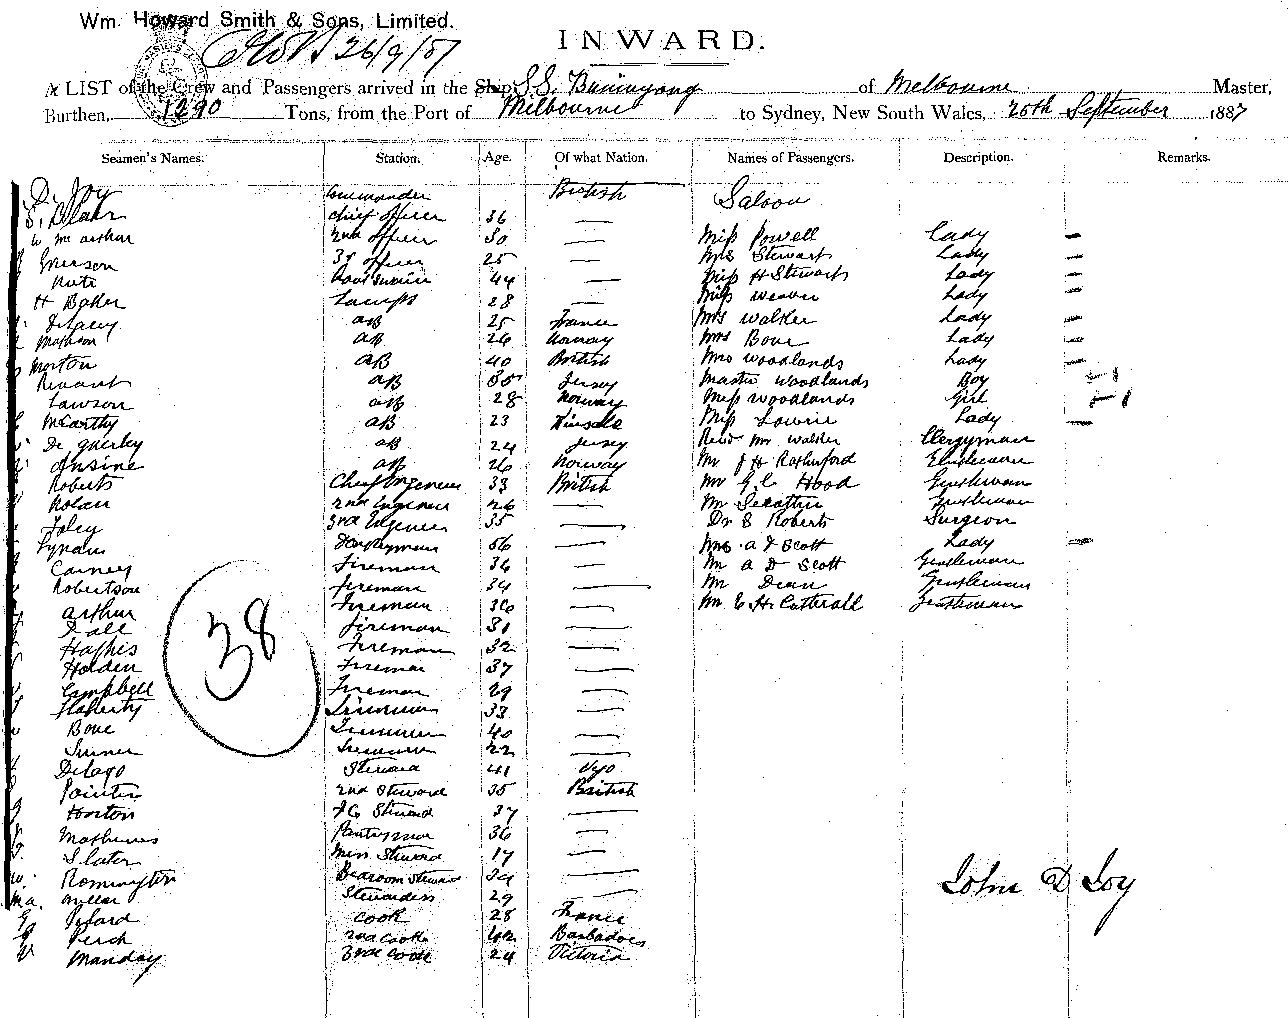 Wm. Howard Smith & Sons, Limited.
INWARD.
26/9/87
A LIST of the Crew and Passengers arrived in the Ship S.S. Buninyong of Melbourne Master,
Burthen, 1290 Tons, from the Port of Melbourne to Sydney, New South Wales, 26th September 1887
Seamen's Names. Station. Age. Of what Nation. Names of Passengers. Description. Remarks.
D. Joy Commander British Saloon
Blair Chief officer 36 —
W McArthur 2nd officer 30 — Miss Powell Lady —
Grierson 3rd officer 25 — Mrs Stewart Lady —
44 — Miss H Stewart Lady —
H Baker Lamps 28 — Miss Weaver Lady —
AB 25 France Mrs Walker Lady —
Matheson AB 26 Norway Mrs Bone Lady —
Morton AB 40 British Mrs Woodlands Lady —
AB 35 Jersey Master Woodlands Boy
Lawson AB 28 Norway Miss Woodlands Girl
McCarthy AB 23 Kinsale Miss Lowrie Lady —
De Querby AB 24 Jersey Revd Mr Walker Clergyman
Ansine AB 26 Norway Mr J H Rutherford Gentleman
Roberts Chief Engineer 33 British Mr G. C. Hood Gentleman
Nolan 2nd Engineer 26 Mr Gentleman
Foley 3rd Engineer 35 — Dr S Roberts Surgeon
Lynam Donkeyman 56 — Mrs A D Scott Lady —
Carney Fireman 36 — Mr A D Scott Gentleman
Robertson Fireman 34 — Mr Dean Gentleman
Arthur Fireman 36 — Mr E H Catterald Gentleman
Fireman 31 —
Fireman 32 —
Holden Fireman 37 —
Campbell Fireman 29 —
Flaherty Trimmer 33 —
Bone Trimmer 40 —
Trimmer 22 —
38
Delago Steward 41 Vigo
Painter 2nd Steward 35 British
Horton F C Steward 37 —
Mathews Pantryman 36 —
Slater Mess Steward 17 —
W. Romington Bedroom Steward 34 —
M.A. Miller Stewardess 29 —
Cook 28 France
Perch 2nd Cook 42 Barbadoes
Manday 3rd Cook 24 Victoria
John D Joy